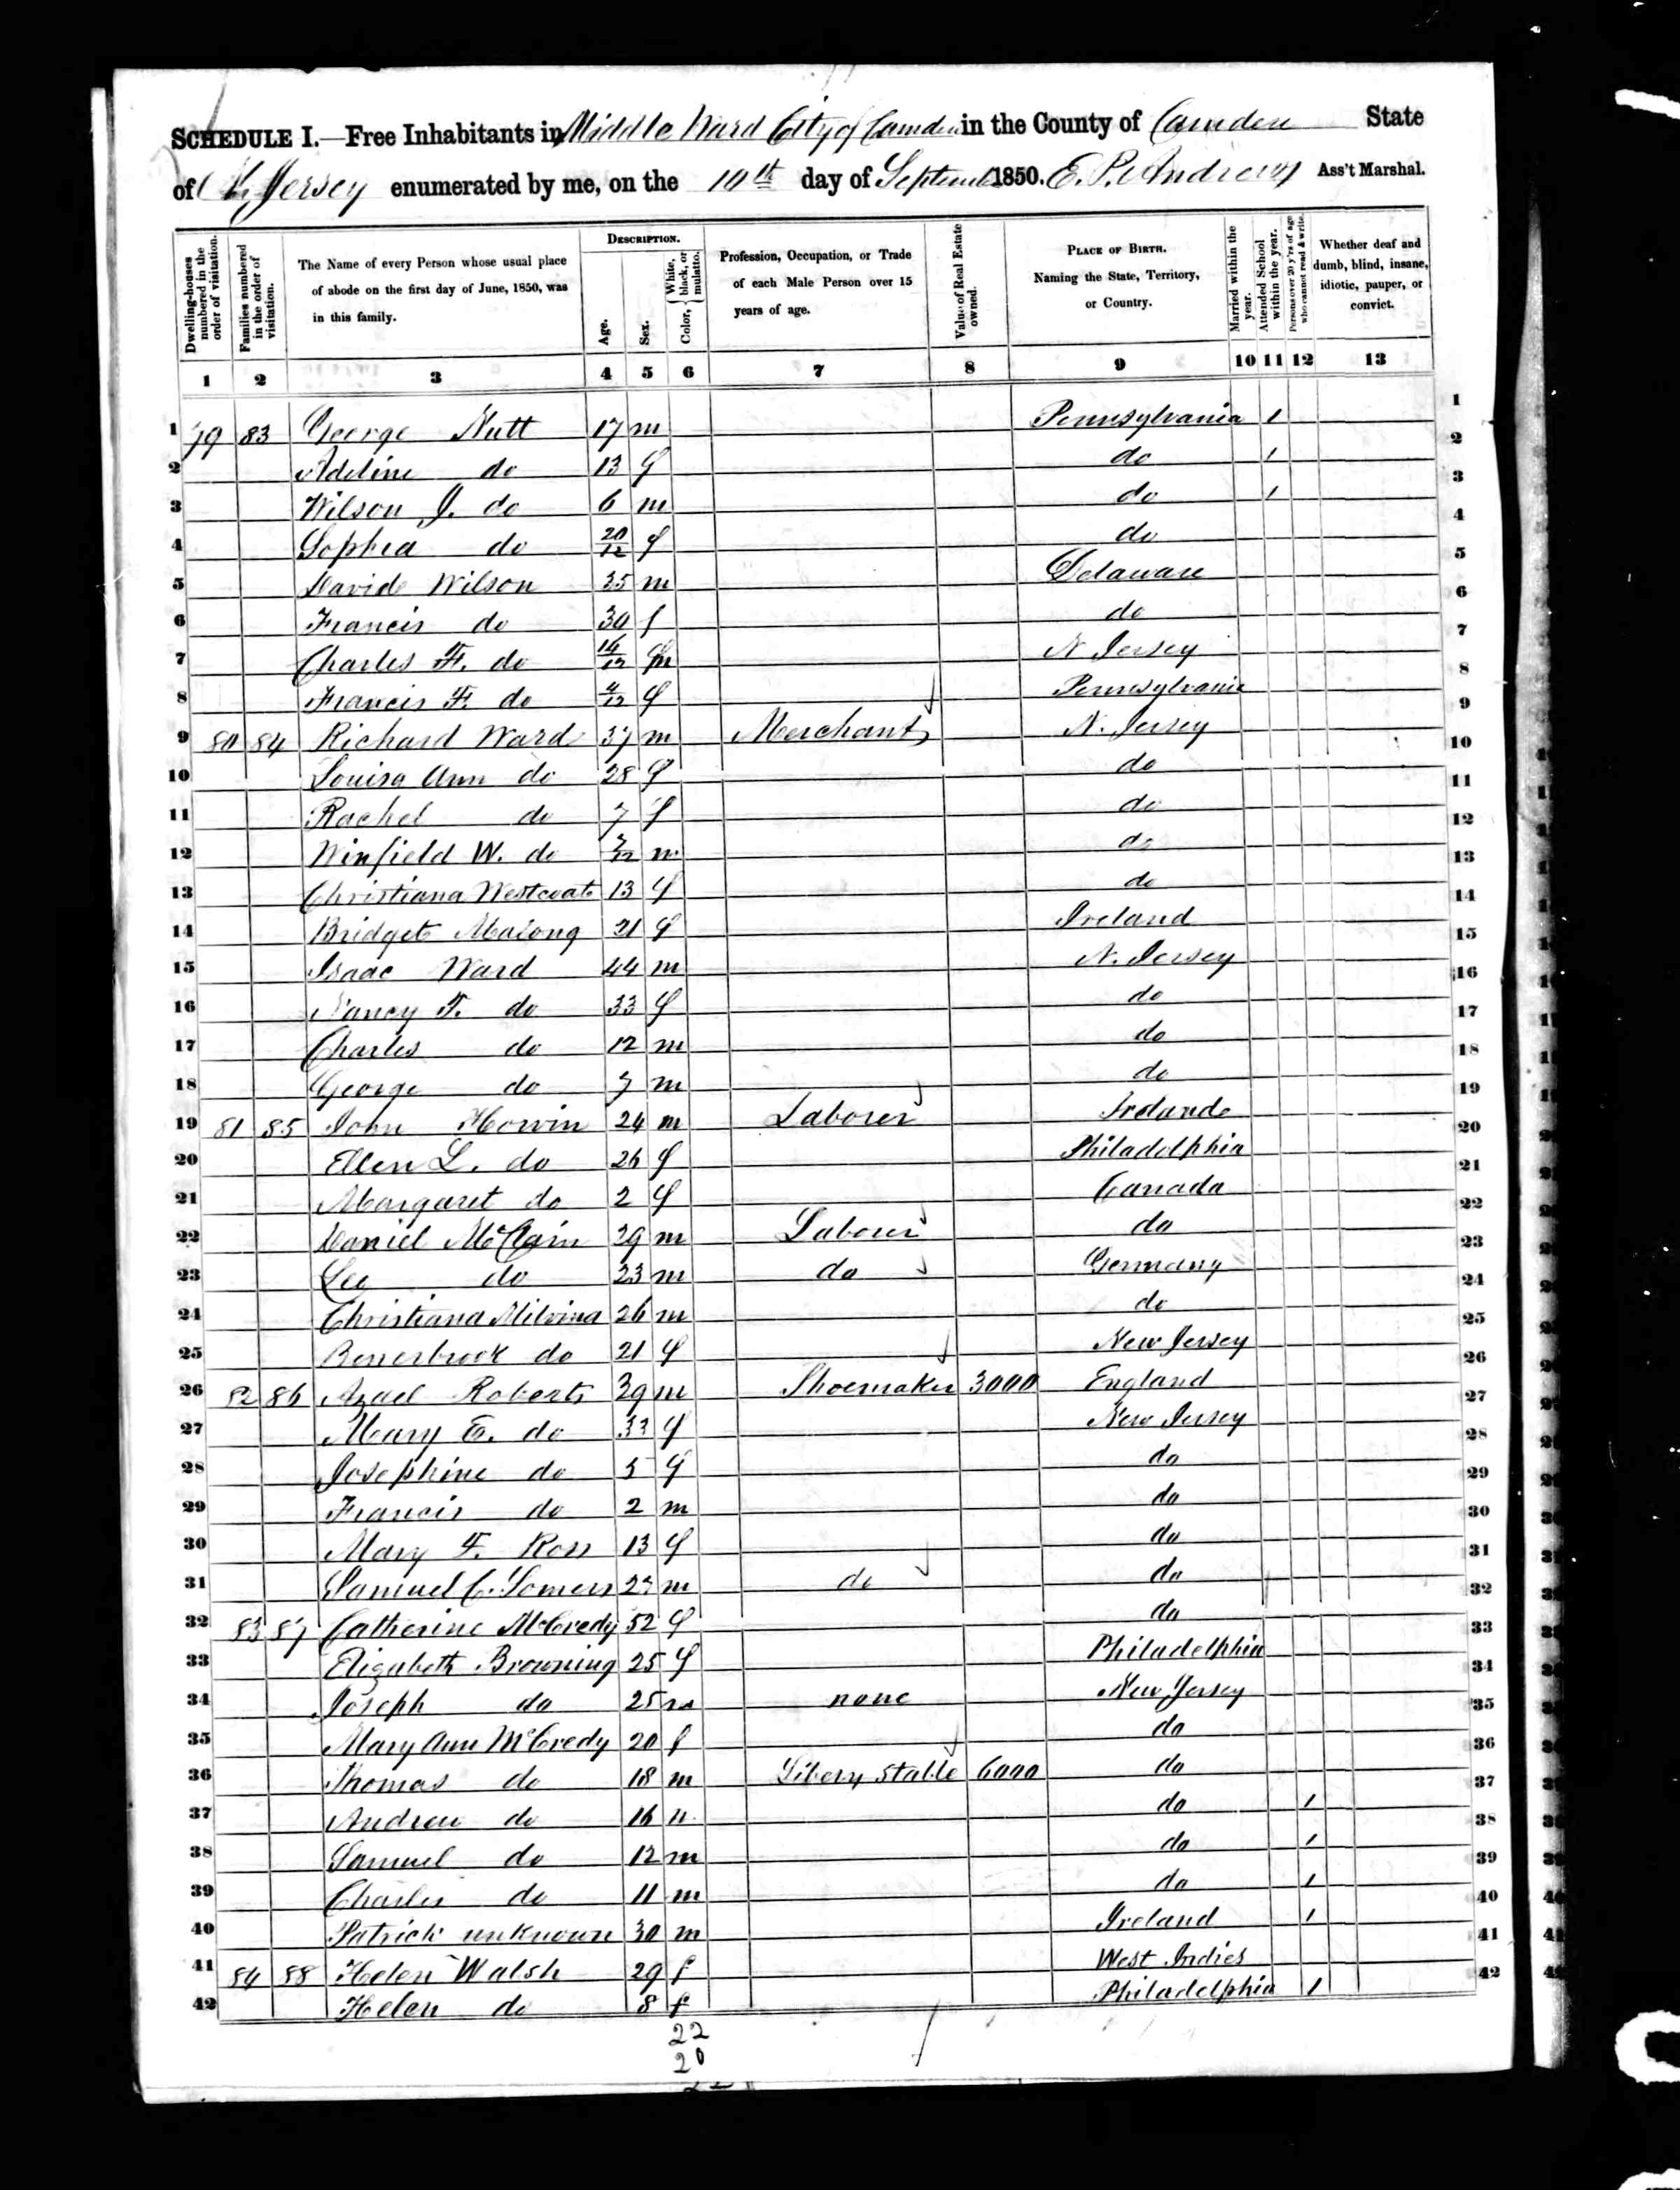 SCHEDULE I.—Free Inhabitants in Middle Ward City of Camden in the County of Camden State
of N. Jersey enumerated by me, on the 10th day of September 1850. E. P. Andrews Ass't Marshal.
Dwelling-houses numbered in the order of visitation.
Families numbered in the order of visitation.
The Name of every Person whose usual place of abode on the first day of June, 1850, was in this family.
DESCRIPTION.
Age.
Sex.
Color, { White, black, or mulatto.
Profession, Occupation, or Trade of each Male Person over 15 years of age.
Value of Real Estate owned.
PLACE OF BIRTH. Naming the State, Territory, or Country.
Married within the year.
Attended School within the year.
Persons over 20 y'rs of age who cannot read & write.
Whether deaf and dumb, blind, insane, idiotic, pauper, or convict.
1 2 3 4 5 6 7 8 9 10 11 12 13
1 79 83 George Nutt 17 m Pennsylvania 1 1
2 Adeline do 13 f do 1 2
3 Wilson J. do 6 m do 1 3
4 Sophia do 20/12 f do 4
5 David Wilson 35 m Delaware 5
6 Francis do 30 f do 6
7 Charles F. do 14/12 m N Jersey 7
8 Francis F. do 4/12 f Pennsylvania 8
9 80 84 Richard Ward 37 m Merchant N. Jersey 9
10 Louisa Ann do 28 f do 10
11 Rachel do 7 f do 11
12 Winfield W. do 7/12 m do 12
13 Christiana Westcoat 13 f do 13
14 Bridget 21 f Ireland 14
15 Isaac Ward 44 m N. Jersey 15
16 Nancy F. do 33 f do 16
17 Charles do 12 m do 17
18 George do 7 m do 18
19 81 85 John Horvin 24 m Laborer Ireland 19
20 Ellen L. do 26 f Philadelphia 20
21 Margaret do 2 f Canada 21
22 Daniel McClain 29 m Laborer do 22
23 Leo do 23 m do Germany 23
24 Christiana Milvina 26 m do 24
25 do 21 f New Jersey 25
26 82 86 Azael Roberts 39 m Shoemaker 3000 England 26
27 Mary E. do 33 f New Jersey 27
28 Josephine do 5 f do 28
29 Francis do 2 m do 29
30 Mary F. Ross 13 f do 30
31 Samuel C. Somers 23 m do do 31
32 83 87 Catherine McCredy 52 f do 32
33 Elizabeth Browning 25 f Philadelphia 33
34 Joseph do 25 m none New Jersey 34
35 Mary Ann McCredy 20 f do 35
36 Thomas do 18 m Livery Stable 6000 do 36
37 Andrew do 16 m do 1 37
38 Samuel do 12 m do 1 38
39 Charles do 11 m do 1 39
40 Patrick unknown 30 m Ireland 1 40
41 84 88 Helen Walsh 29 f West Indies 41
42 Helen do 8 f Philadelphia 1 42
22
20